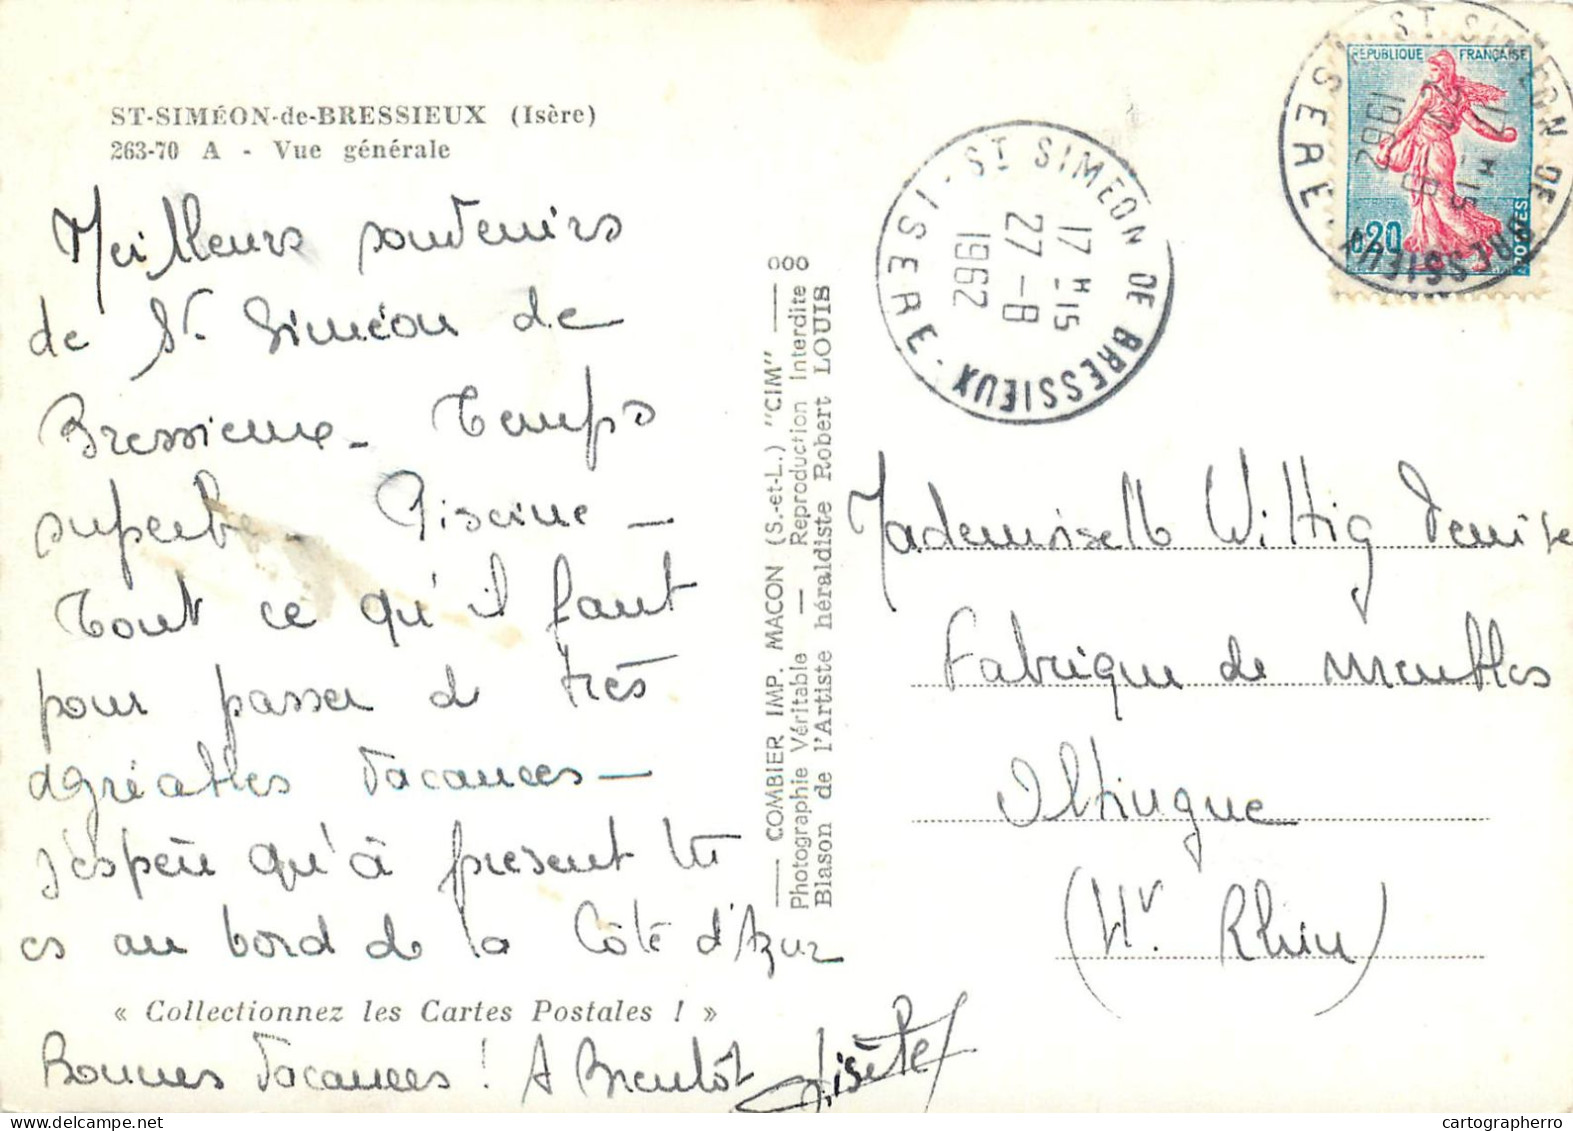 ST-SIMÉON-de-BRESSIEUX (Isère)
263-70 A - Vue générale
Meilleurs souvenirs
de St. Siméon de
Bressieux - Temps
superbe - Piscine -
Tout ce qu'il faut
pour passer de très
agréables vacances -
J'espère qu'à présent tu
es au bord de la Côte d'Azur
« Collectionnez les Cartes Postales ! »
Bonnes vacances ! A Bientôt
COMBIER IMP. MACON (S.-et-L.) "CIM"
Photographie Véritable — Reproduction Interdite
Blason de l'Artiste héraldiste Robert LOUIS
ST SIMEON DE BRESSIEUX
ISERE
17 H 15
27 - 8
1962
REPUBLIQUE FRANÇAISE
0,20
POSTES
ST SIMEON DE BRESSIEUX
ISERE
17 H 15
27 - 8
1962
Mademoiselle Wittig Denise
Fabrique de meubles
Oltingue
(Ht. Rhin)
cartographerro